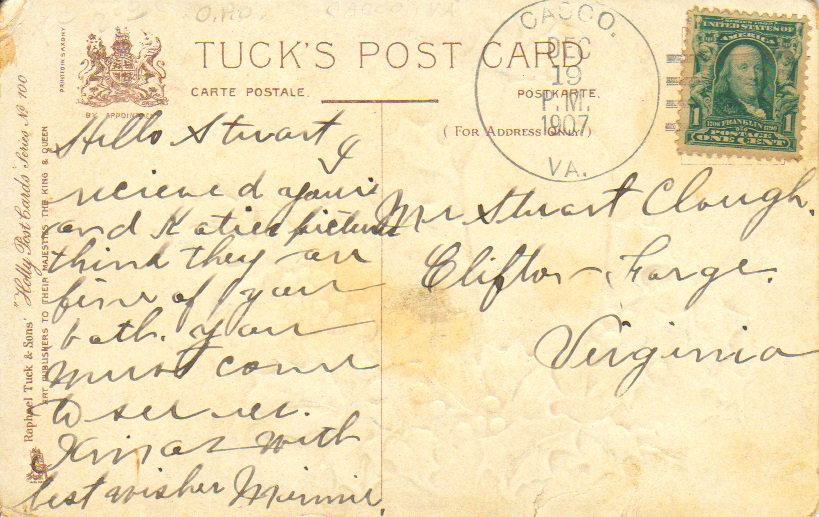 TUCK'S POST CARD
CARTE POSTALE.
POSTKARTE.
BY APPOINTMENT
( FOR ADDRESS ONLY. )
PRINTED IN SAXONY
Raphael Tuck & Sons' "Holly Post Cards" Series No 100
ART PUBLISHERS TO THEIR MAJESTIES THE KING & QUEEN
CASCO.
DEC
19
P.M.
1907
VA.
SERIES 1902
UNITED STATES OF
AMERICA
1 FRANKLIN 1
POSTAGE
ONE CENT
Hello Stuart I
recieved yours
and Katies picture
think they are
fine of you
both. you
must come
to see us.
Xmas with
best wishes Minnie.
Mr Stuart Clough.
Clifton Forge.
Virginia